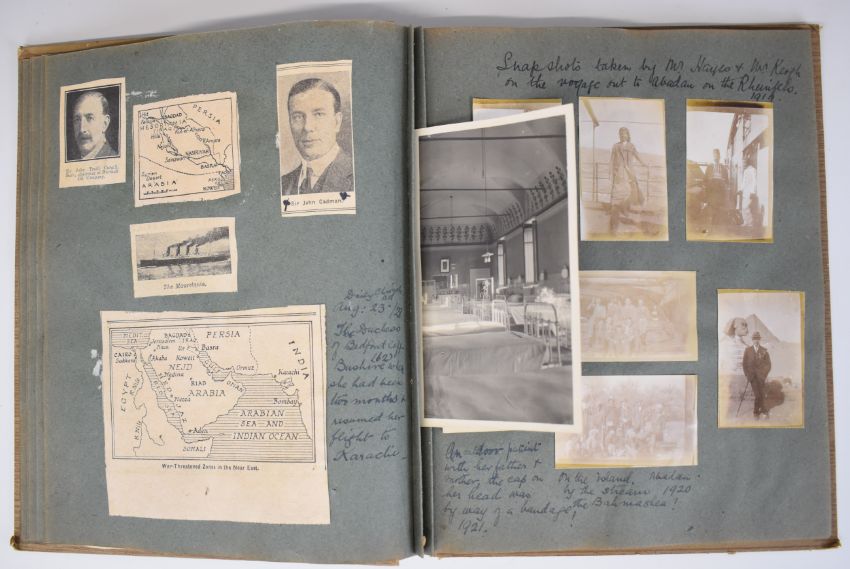 Sir John
The Mauretania.
Sir John Cadman.
PERSIA
BAGDAD
Kut-el-Amara
Amara
NASIRIYAH
BASRA
ARABIA
KOWEIT
MEDIT.
SEA
BAGDAD
PERSIA
Jerusalem
IRAQ
Basra
CAIRO
Akaba
Koweit
INDIA
EGYPT
NEJD
Medina
Ormuz
Karachi
RIAD
OMAN
Mecca
ARABIA
Bombay
ARABIAN
SEA AND
INDIAN OCEAN
Aden
SOMALI
War-Threatened Zones in the Near East.
Aug: 23rd
The Duchess
of Bedford
(62)
Bushire
she had been
two months &
resumed her
flight to
Karachi.
Snapshots taken by Mr Hayes & Mr Keogh
on the voyage out to Abadan on the Rheinfels.
An outdoor patient
with her father &
mother, the cap on
her head was
by way of a bandage!
1921.
On the island, Abadan.
by the stream 1920
the Bahmashea!